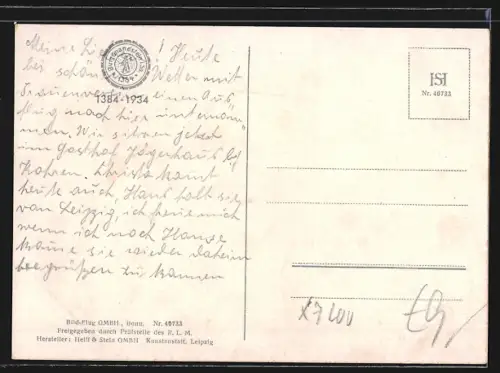 Meine Lie ! Heute
bei schön Wetter mit
Frauenver einen Aus
flug nach hier unternom
men. Wir sitzen jetzt
im Gasthof Jägerhaus b/
Kohren. Christa kommt
heute auch, Hans holt sie
von Leipzig, ich freue mich
wenn ich nach Hause
komme sie wieder daheim
begrüßen zu können
1384
1384-1934
ISI
Nr. 40733
Bild-Flug GMBH., Nr. 40733
Freigegeben durch Prüfstelle des R. L. M.
Hersteller: & Stein GMBH Kunstanstalt, Leipzig